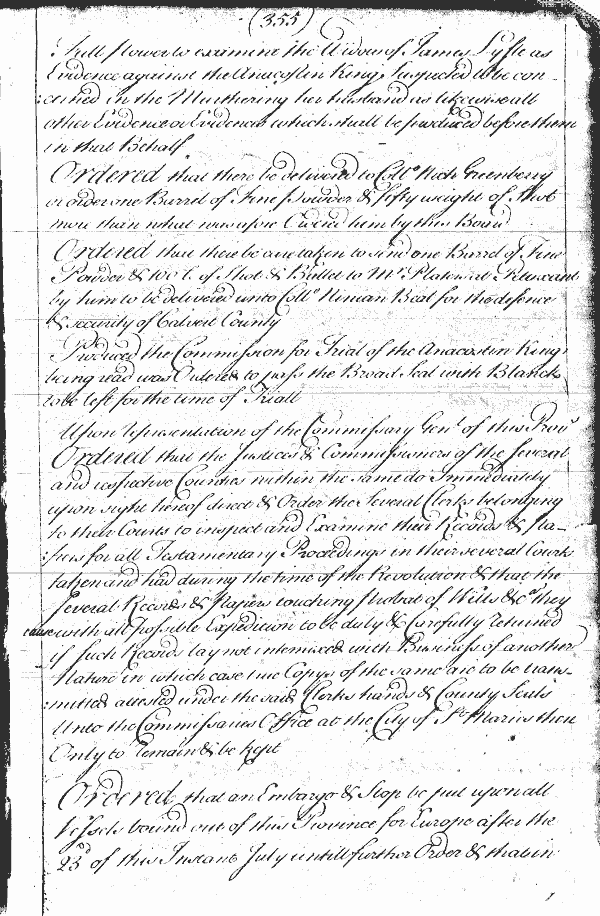 (355)
full power to examine the Widow of James Lyfle as
Evidence against the Anacostin King Suspected to be con
cerned in the Murthering her husband as likewise all
other Evidence or Evidences which shall be produced before them
in that Behalf
Ordered that there be delivered to Collo Nich Greenberry
or order one Barrel of Fine powder & fifty weight of Shot
more than what was afore Ordered him by this Board
Ordered that there be care taken to send one Barrel of Fine
Powder & 100 l. of Shot & Bullet to Mr Plater at Patuxent
by him to be delivered unto Collo Ninian Beal for the defence
& security of Calvert County
Produced the Commission for Trial of the Anacostin King
being read was Ordered to passe the Broad Seal with Blancks
to be left for the time of Triall
Upon representation of the Commissary Genl of this Provce
Ordered that the Justices & Commissioners of the Several
and respective Counties within the same do Immediately
upon sight hereof direct & Order the Several Clerks belonging
to their Courts to inspect and Examine their Records & Pa-
piers for all Testamentary Proceedings in their several Courts
taken and had during the time of the Revolution & that the
Several Records & Papiers touching Probat of Wills &ca they
cause with all possible Expedition to be duly & Carefully returned
if such Records lay not intermixed with Business of another
Nature in which case true Copys of the same are to be trans-
mitted attested under the said Clerks hands & County Seals
Unto the Commissaries Office at the City of St Maries then
Only to remain & be kept
Ordered that an Embargo & Stop be put upon all
Vessels bound out of this Province for Europe after the
23d of this Instant July untill further Order & that in